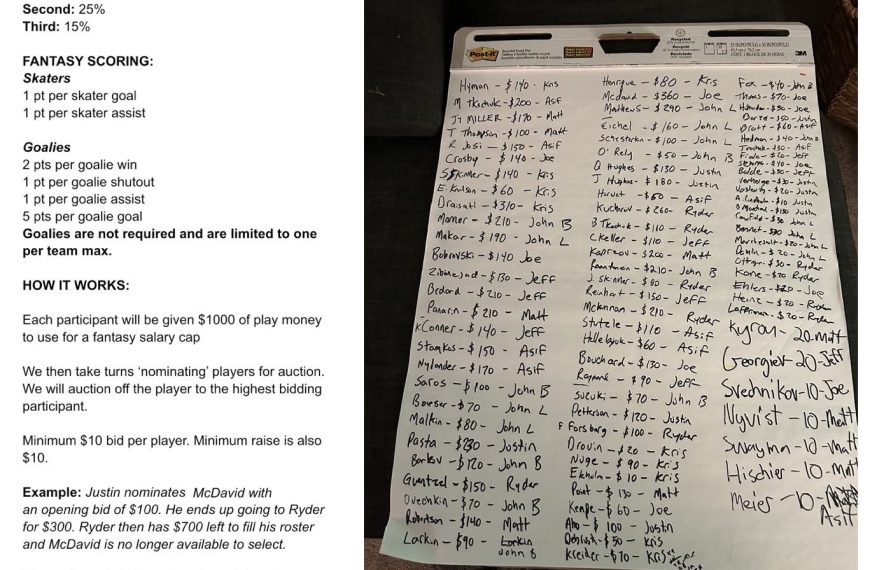 Second: 25%
Third: 15%
FANTASY SCORING:
Skaters
1 pt per skater goal
1 pt per skater assist
Goalies
2 pts per goalie win
1 pt per goalie shutout
1 pt per goalie assist
5 pts per goalie goal
Goalies are not required and are limited to one
per team max.
HOW IT WORKS:
Each participant will be given $1000 of play money
to use for a fantasy salary cap
We then take turns 'nominating' players for auction.
We will auction off the player to the highest bidding
participant.
Minimum $10 bid per player. Minimum raise is also
$10.
Example: Justin nominates McDavid with
an opening bid of $100. He ends up going to Ryder
for $300. Ryder then has $700 left to fill his roster
and McDavid is no longer available to select.
Post-it
3M
Hyman - $140 - Kris
M Tkachuk - $200 - Asif
JT MILLER - $170 - Matt
T Thompson - $100 - Matt
R Josi - $150 - Asif
Crosby - $140 - Joe
S Skinner - $140 - Kris
E. Karlson - $60 - Kris
Draisaitl - $310 - Kris
Marner - $210 - John B
Makar - $190 - John L
Bobrovski - $140 Joe
Zibanejad - $130 - Jeff
Bedard - $210 - Jeff
Panarin - $210 - Matt
K Conner - $140 - Jeff
Stamkos - $150 - Asif
Nylander - $170 - Asif
Saros - $100 - John B
Boeser - $70 - John L
Malkin - $80 - John L
Pasta - $230 - Justin
Barkov - $120 - John B
Guntzel - $150 - Ryder
Ovechkin - $70 - John B
Robertson - $140 - Matt
Larkin - $90 - Larkin
John B
Henrique - $80 - Kris
Mcdavid - $360 - Joe
Mathews - $290 - John L
Eichel - $160 - John L
Schesterkin - $100 - John L
O'Rely - $50 - John B
Q Hughes - $130 - Justin
J Hughes - $180 - Justin
Horvat - $60 - Asif
Kucherov - $260 - Ryder
B Tkachuk - $110 - Ryder
C Keller - $110 - Jeff
Kaprizov - $200 - Matt
Rantanen - $210 - John B
J. Skinner - $80 - Ryder
Reinhart - $150 - Jeff
Mckinnon - $210 - Ryder
Stutzle - $110 - Asif
Hellebyck - $60 - Asif
Bouchard - $130 - Joe
Raymond - $90 - Jeff
Suzuki - $70 - John B
Petterson - $120 - Justin
F Forsberg - $100 - Ryder
Drouin - $20 - Kris
Nuge - $90 - Kris
Ekholm - $10 - Kris
Point - $130 - Matt
Kempe - $60 - Joe
Aho - $100 - Justin
Debrusk - $50 - Kris
Kreider - $70 - Kris
Fox - $40 - John B
Thomas - $70 - Joe
- $50 - Joe
- $50 - Justin
Pratt - $60 - Asif
Hedman - $40 - John B
- $30 - Asif
Fiala - $20 - Jeff
- $40 - Joe
Boldy - $50 - Jeff
Verhaeghe - $30 - Justin
- $20 - Justin
- $10 - Justin
B Marchand - $130 Justin
Caufield - $30 John L
Bennet - $20 John L
Marchesault - $20 - John L
- $20 - John L
- $30 - Ryder
Kane - $20 Ryder
Ehlers - $20 - Joe
Heinz - $20 - Ryder
Lafreniere - $20 - Ryder
Kyrou - 20 - Matt
Georgiev - 20 - Jeff
Svechnikov - 10 - Joe
Nyvist - 10 - Matt
Swayman - 10 - Matt
Hischier - 10 - Matt
Meier - 10 - Matt
Asif